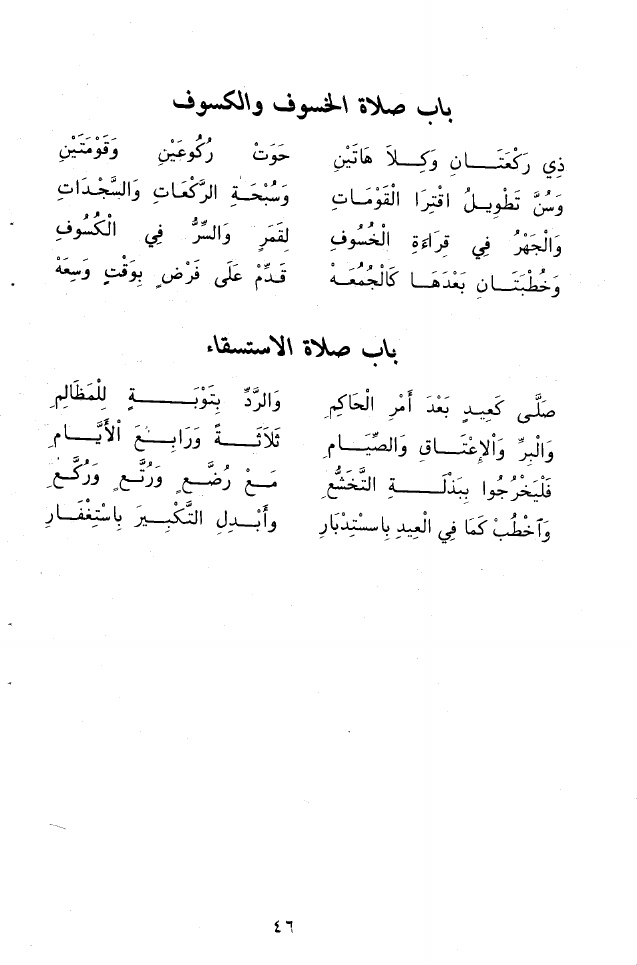 باب صلاة الخسوف والكسوف
ذِي رَكْعَتَـــانِ وَكِـلاَ هَاتَيْنِ حَوَتْ رُكُوعَيْنِ وَقَوْمَتَيْنِ
وَسُنَّ تَطْوِيـلُ اقْتِرَا القَوْمَـاتِ وَسُبْحَـةِ الرَّكَعَاتِ وَالسَّجَدَاتِ
وَالْجَهْرُ فِي قِرَاءَةِ الْخُسُوفِ لِقَمَرٍ وَالسِّرُّ فِي الْكُسُوفِ
وَخُطْبَتَـانِ بَعْدَهَـا كَالْجُمُعَـهْ قَدِّمْ عَلَى فَرْضٍ بِوَقْتٍ وَسِعَهْ
باب صلاة الاستسقاء
صَلَّى كَعِيـدٍ بَعْدَ أَمْرِ الْحَاكِمِ وَالرَّدِّ بِتَوْبَـــةٍ لِلْمَظَالِمِ
وَالْبِرِّ وَالْإِعْتَـاقِ وَالصِّيَـامِ ثَلَاثَـــةً وَرَابِـعَ الْأَيَّـامِ
فَلْيَخْرُجُوا بِبَذْلَـــةِ التَّخَشُّعِ مَـعْ رُضَّـعٍ وَرُتَّـعٍ وَرُكَّـعِ
وَاخْطُبْ كَمَا فِي العِيدِ بِاسْتِدْبَارِ وَأَبْـدِلِ التَّكْبِيـرَ بِاسْتِغْفَـارِ
٤٦